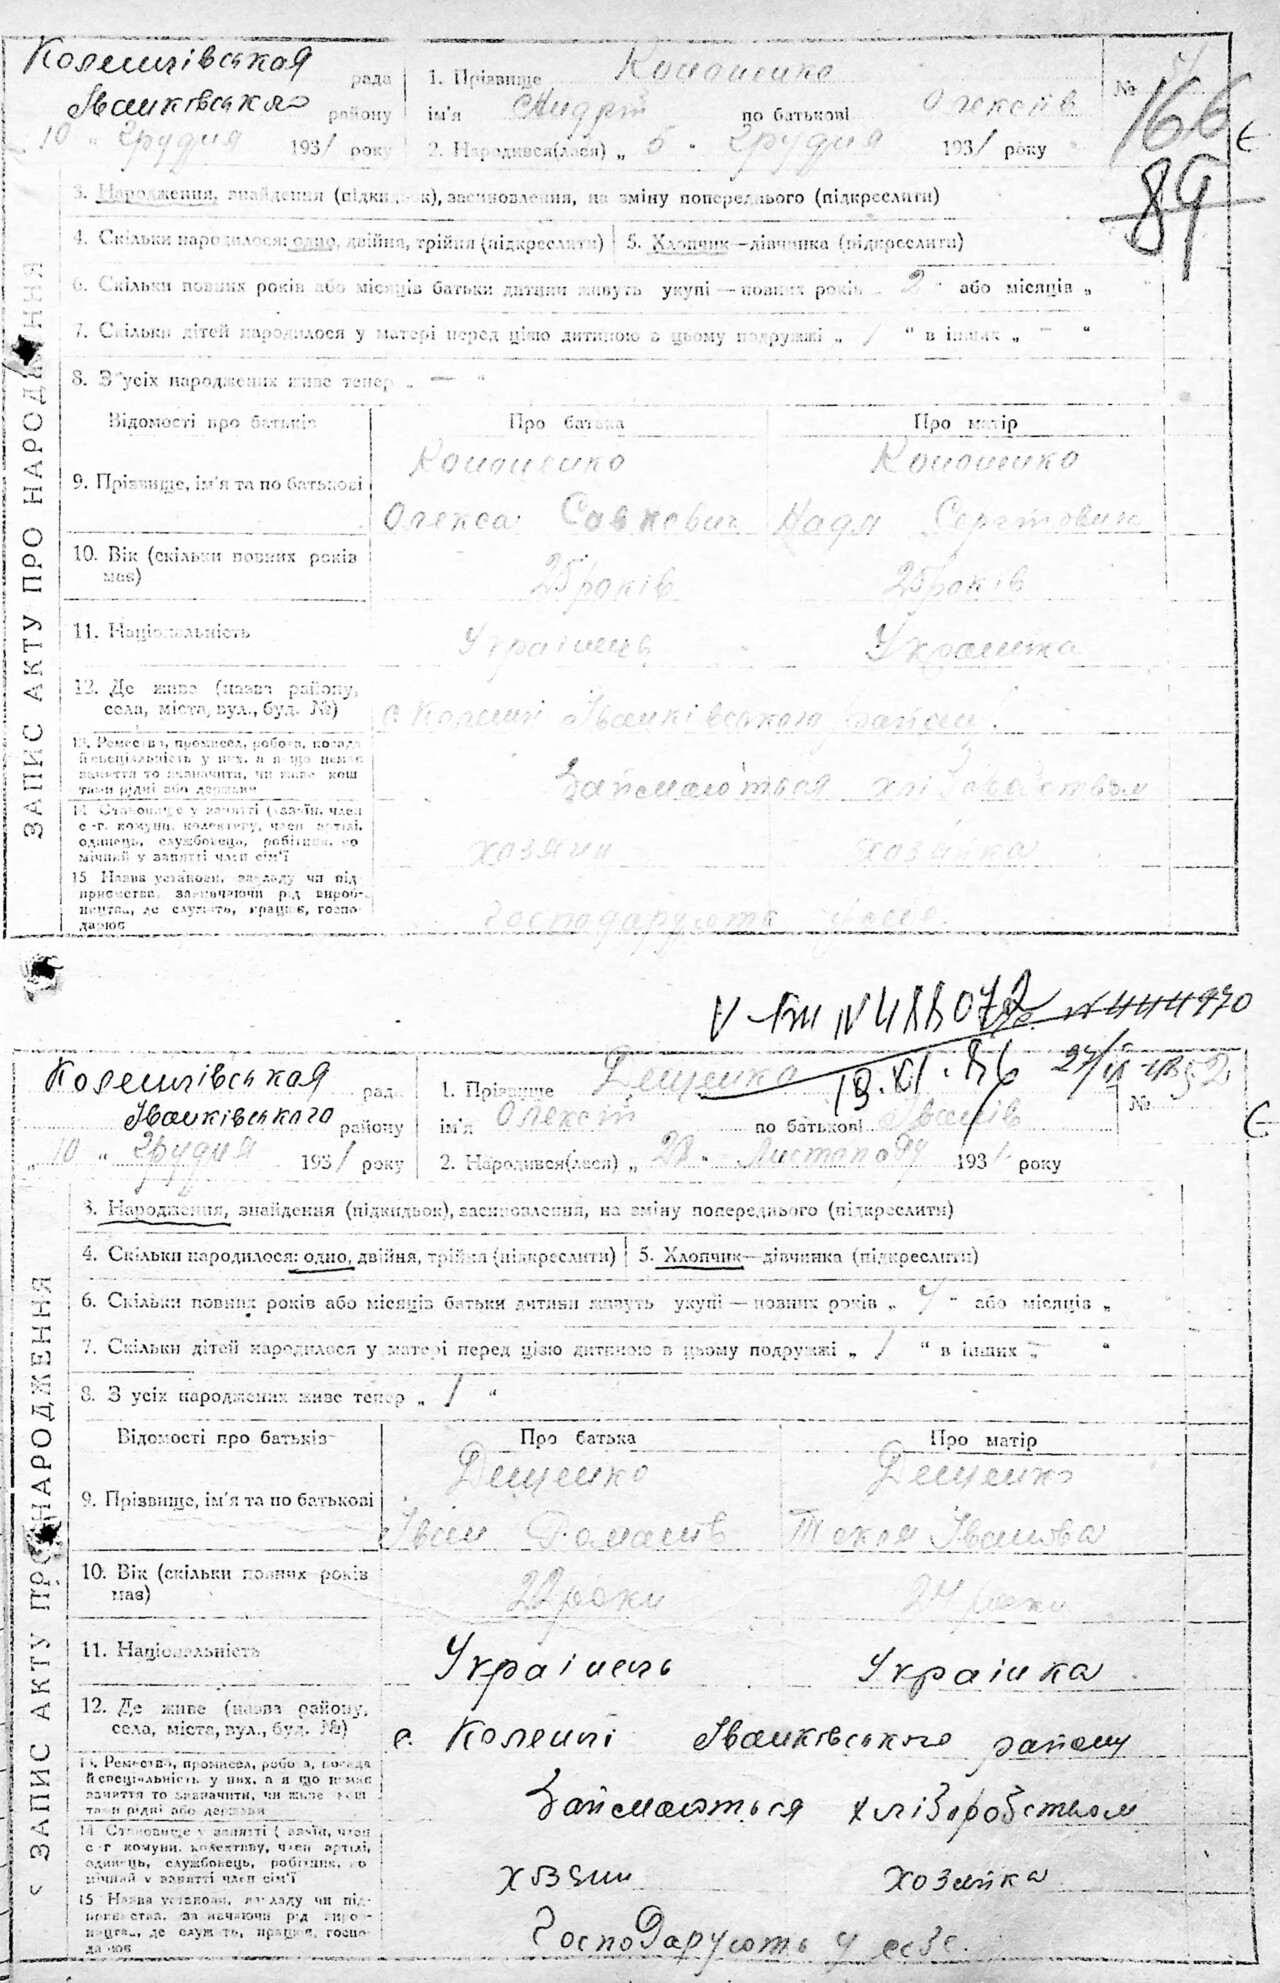 Колештівськая рада
Іванківського району
„ 10 “ Грудня 1931 року
1. Прізвище Кононенко
ім'я Андрій по батькові Олексіїв
2. Народився(лася) „ 5 “ Грудня 1931 року
№
166
89
3. Народження, знайдення (підкидьок), засиновлення, на зміну попереднього (підкреслити)
4. Скільки народилося: одно, двійня, трійня (підкреслити) 5. Хлопчик—дівчинка (підкреслити)
6. Скільки повних років або місяців батьки дитини живуть укупі — повних років „ 2 “ або місяців „ “
7. Скільки дітей народилося у матері перед цією дитиною в цьому подружжі „ 1 “ в інших „ — “
8. З усіх народжених живе тепер „ — “
Відомості про батьків Про батька Про матір
9. Прізвище, ім'я та по батькові
Кононенко Кононенко
Олекса Савкович Надя
10. Вік (скільки повних років має)
25 років 25 років
11. Національність Українець Українка
12. Де живе (назва району, села, міста, вул., буд. №)
с. Іванківського району
13. Ремество, промисел, робота, посада й спеціяльність у них, а я що немає заняття то зазначити, чи живе коштами рідні або держави
Займаються хліборобством
14 Становище у занятті (хазяїн, член с-г. комуни, колективу, член артілі, одинець, службовець, робітник, помічний у занятті член сім'ї
хозяин хозяйка
15 Назва установи, закладу чи підприємства, зазначаючи рід виробництва, де служить, працює, господарює
Господарують
ЗАПИС АКТУ ПРО НАРОДЖЕННЯ
V-БМ N 488072 N 444970
19.XI.86
Колештівськая рада
Іванківського району
„ 10 “ Грудня 1931 року
1. Прізвище Дещенко
ім'я Олексій по батькові Іванів
2. Народився(лася) „ 28 “ Листопада 1931 року
№
3. Народження, знайдення (підкидьок), засиновлення, на зміну попереднього (підкреслити)
4. Скільки народилося: одно, двійня, трійня (підкреслити) 5. Хлопчик—дівчинка (підкреслити)
6. Скільки повних років або місяців батьки дитини живуть укупі — повних років „ 4 “ або місяців „
7. Скільки дітей народилося у матері перед цією дитиною в цьому подружжі „ 1 “ в інших — “
8. З усіх народжених живе тепер „ 1 “
Відомості про батьків Про батька Про матір
9. Прізвище, ім'я та по батькові
Дещенко Дещенко
Іван Романів Текля Іванова
10. Вік (скільки повних років має)
22 роки 24 роки
11. Національність Українець Українка
12. Де живе (назва району, села, міста, вул., буд. №)
с. Іванківського району
13. Ремество, промисел, робота, посада й спеціяльність у них, а я що немає заняття то зазначити, чи живе коштами рідні або держави
Займаються хліборобством
14 Становище у занятті (хазяїн, член с-г комуни, колективу, член артілі, одинець, службовець, робітник, помічний у занятті член сім'ї
хозяин хозяйка
15 Назва установи, закладу чи підприємства, зазначаючи рід виробництва, де служить, працює, господарює
Господарують у себе.
ЗАПИС АКТУ ПРО НАРОДЖЕННЯ